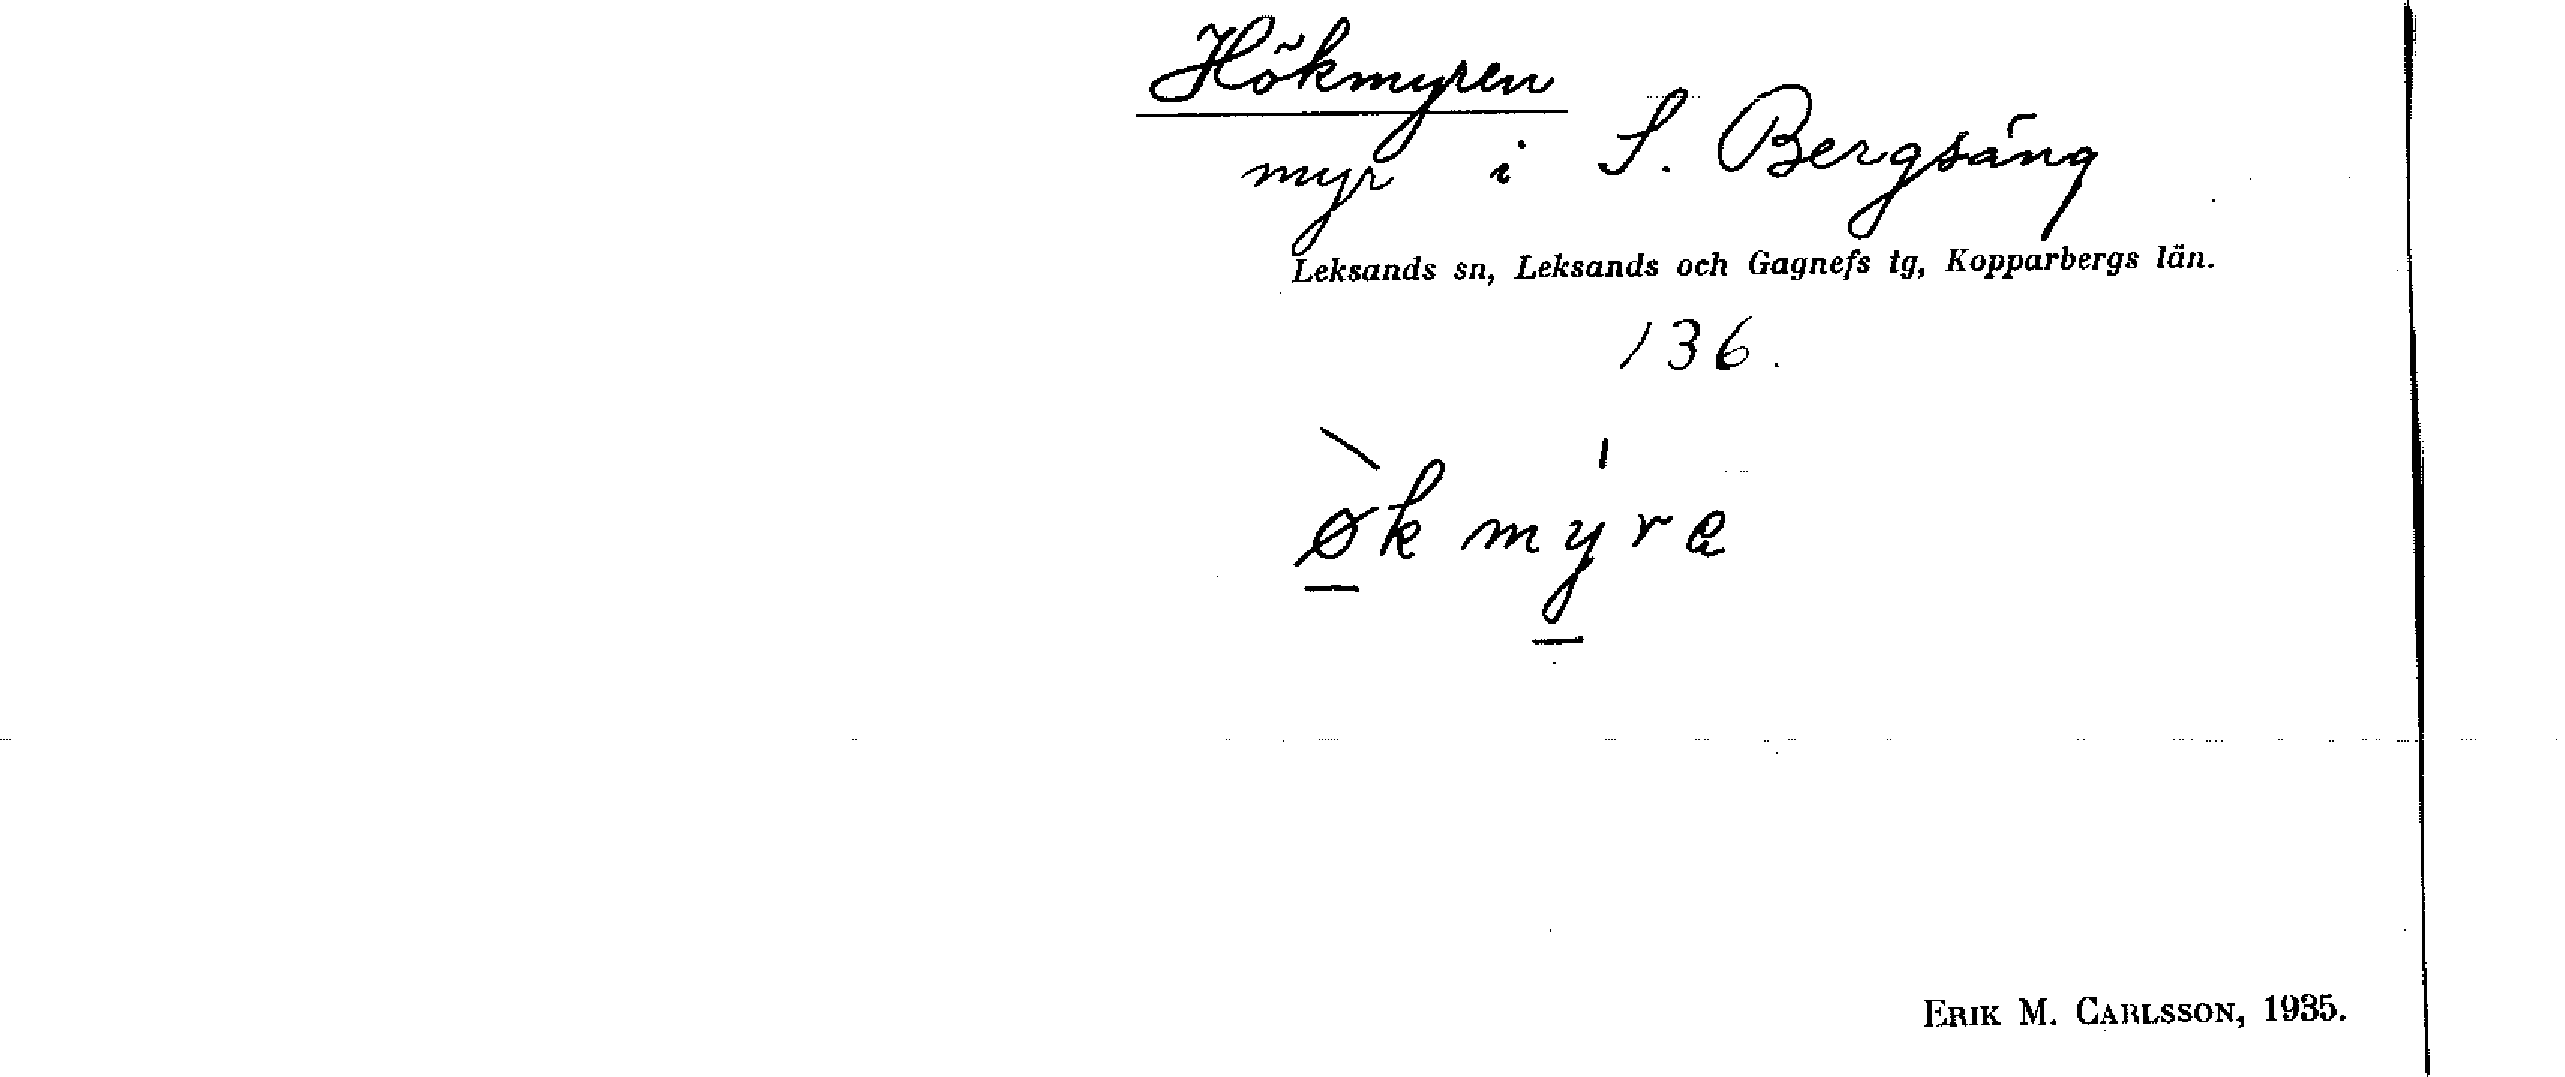 Hökmyren
myr i S. Bergsäng
Leksands sn, Leksands och Gagnefs tg, Kopparbergs län.
136.
ø̠̀k my̠̍ra
ERIK M. CARLSSON, 1935.